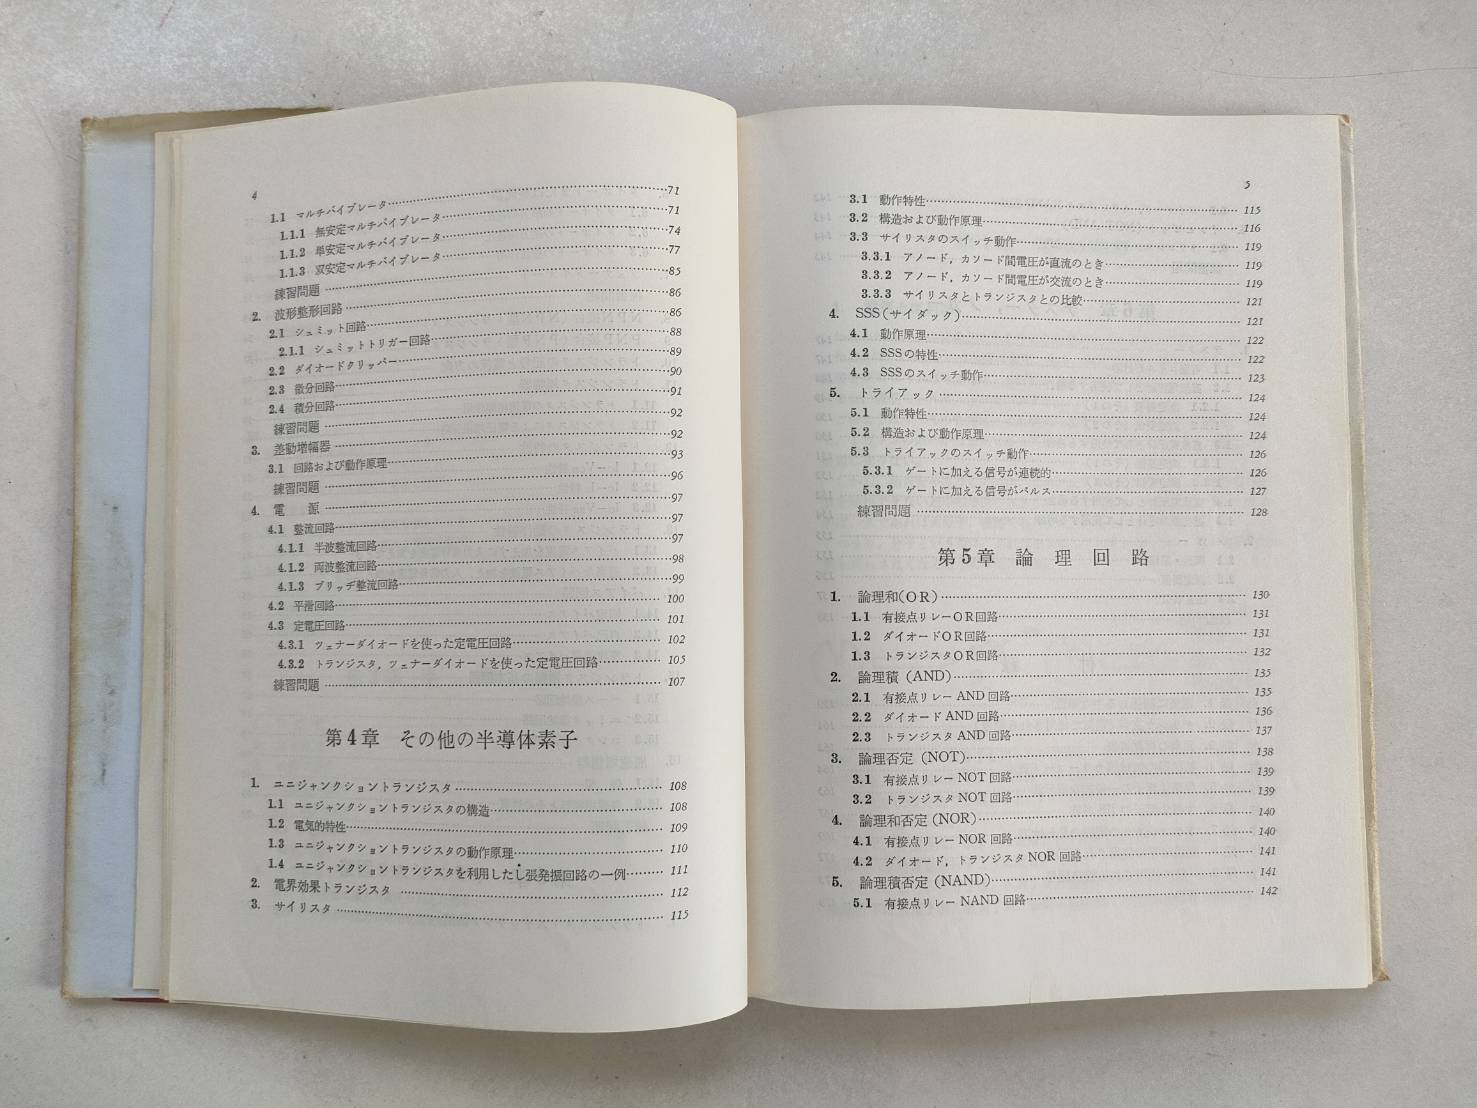 4
1.1 マルチバイブレータ……71
1.1.1 無安定マルチバイブレータ……71
1.1.2 単安定マルチバイブレータ……74
1.1.3 双安定マルチバイブレータ……77
練習問題……85
2. 波形整形回路……86
2.1 シュミット回路……86
2.1.1 シュミットトリガー回路……88
2.2 ダイオードクリッパー……89
2.3 微分回路……90
2.4 積分回路……91
練習問題……92
3. 差動増幅器……92
3.1 回路および動作原理……93
練習問題……96
4. 電 源……97
4.1 整流回路……97
4.1.1 半波整流回路……97
4.1.2 両波整流回路……98
4.1.3 ブリッヂ整流回路……99
4.2 平滑回路……100
4.3 定電圧回路……101
4.3.1 ツェナーダイオードを使った定電圧回路……102
4.3.2 トランジスタ，ツェナーダイオードを使った定電圧回路……105
練習問題……107
第4章 その他の半導体素子
1. ユニジャンクショントランジスタ……108
1.1 ユニジャンクショントランジスタの構造……108
1.2 電気的特性……109
1.3 ユニジャンクショントランジスタの動作原理……110
1.4 ユニジャンクショントランジスタを利用したし張発振回路の一例……111
2. 電界効果トランジスタ……112
3. サイリスタ……115
5
3.1 動作特性……115
3.2 構造および動作原理……116
3.3 サイリスタのスイッチ動作……119
3.3.1 アノード，カソード間電圧が直流のとき……119
3.3.2 アノード，カソード間電圧が交流のとき……119
3.3.3 サイリスタとトランジスタとの比較……121
4. SSS（サイダック）……121
4.1 動作原理……122
4.2 SSSの特性……122
4.3 SSSのスイッチ動作……123
5. トライアック……124
5.1 動作特性……124
5.2 構造および動作原理……124
5.3 トライアックのスイッチ動作……126
5.3.1 ゲートに加える信号が連続的……126
5.3.2 ゲートに加える信号がパルス……127
練習問題……128
第5章 論 理 回 路
1. 論理和（OR）……130
1.1 有接点リレーOR回路……131
1.2 ダイオードOR回路……131
1.3 トランジスタOR回路……132
2. 論理積（AND）……135
2.1 有接点リレーAND回路……135
2.2 ダイオードAND回路……136
2.3 トランジスタAND回路……137
3. 論理否定（NOT）……138
3.1 有接点リレーNOT回路……139
3.2 トランジスタNOT回路……139
4. 論理和否定（NOR）……140
4.1 有接点リレーNOR回路……140
4.2 ダイオード，トランジスタNOR回路……141
5. 論理積否定（NAND）……141
5.1 有接点リレーNAND回路……142